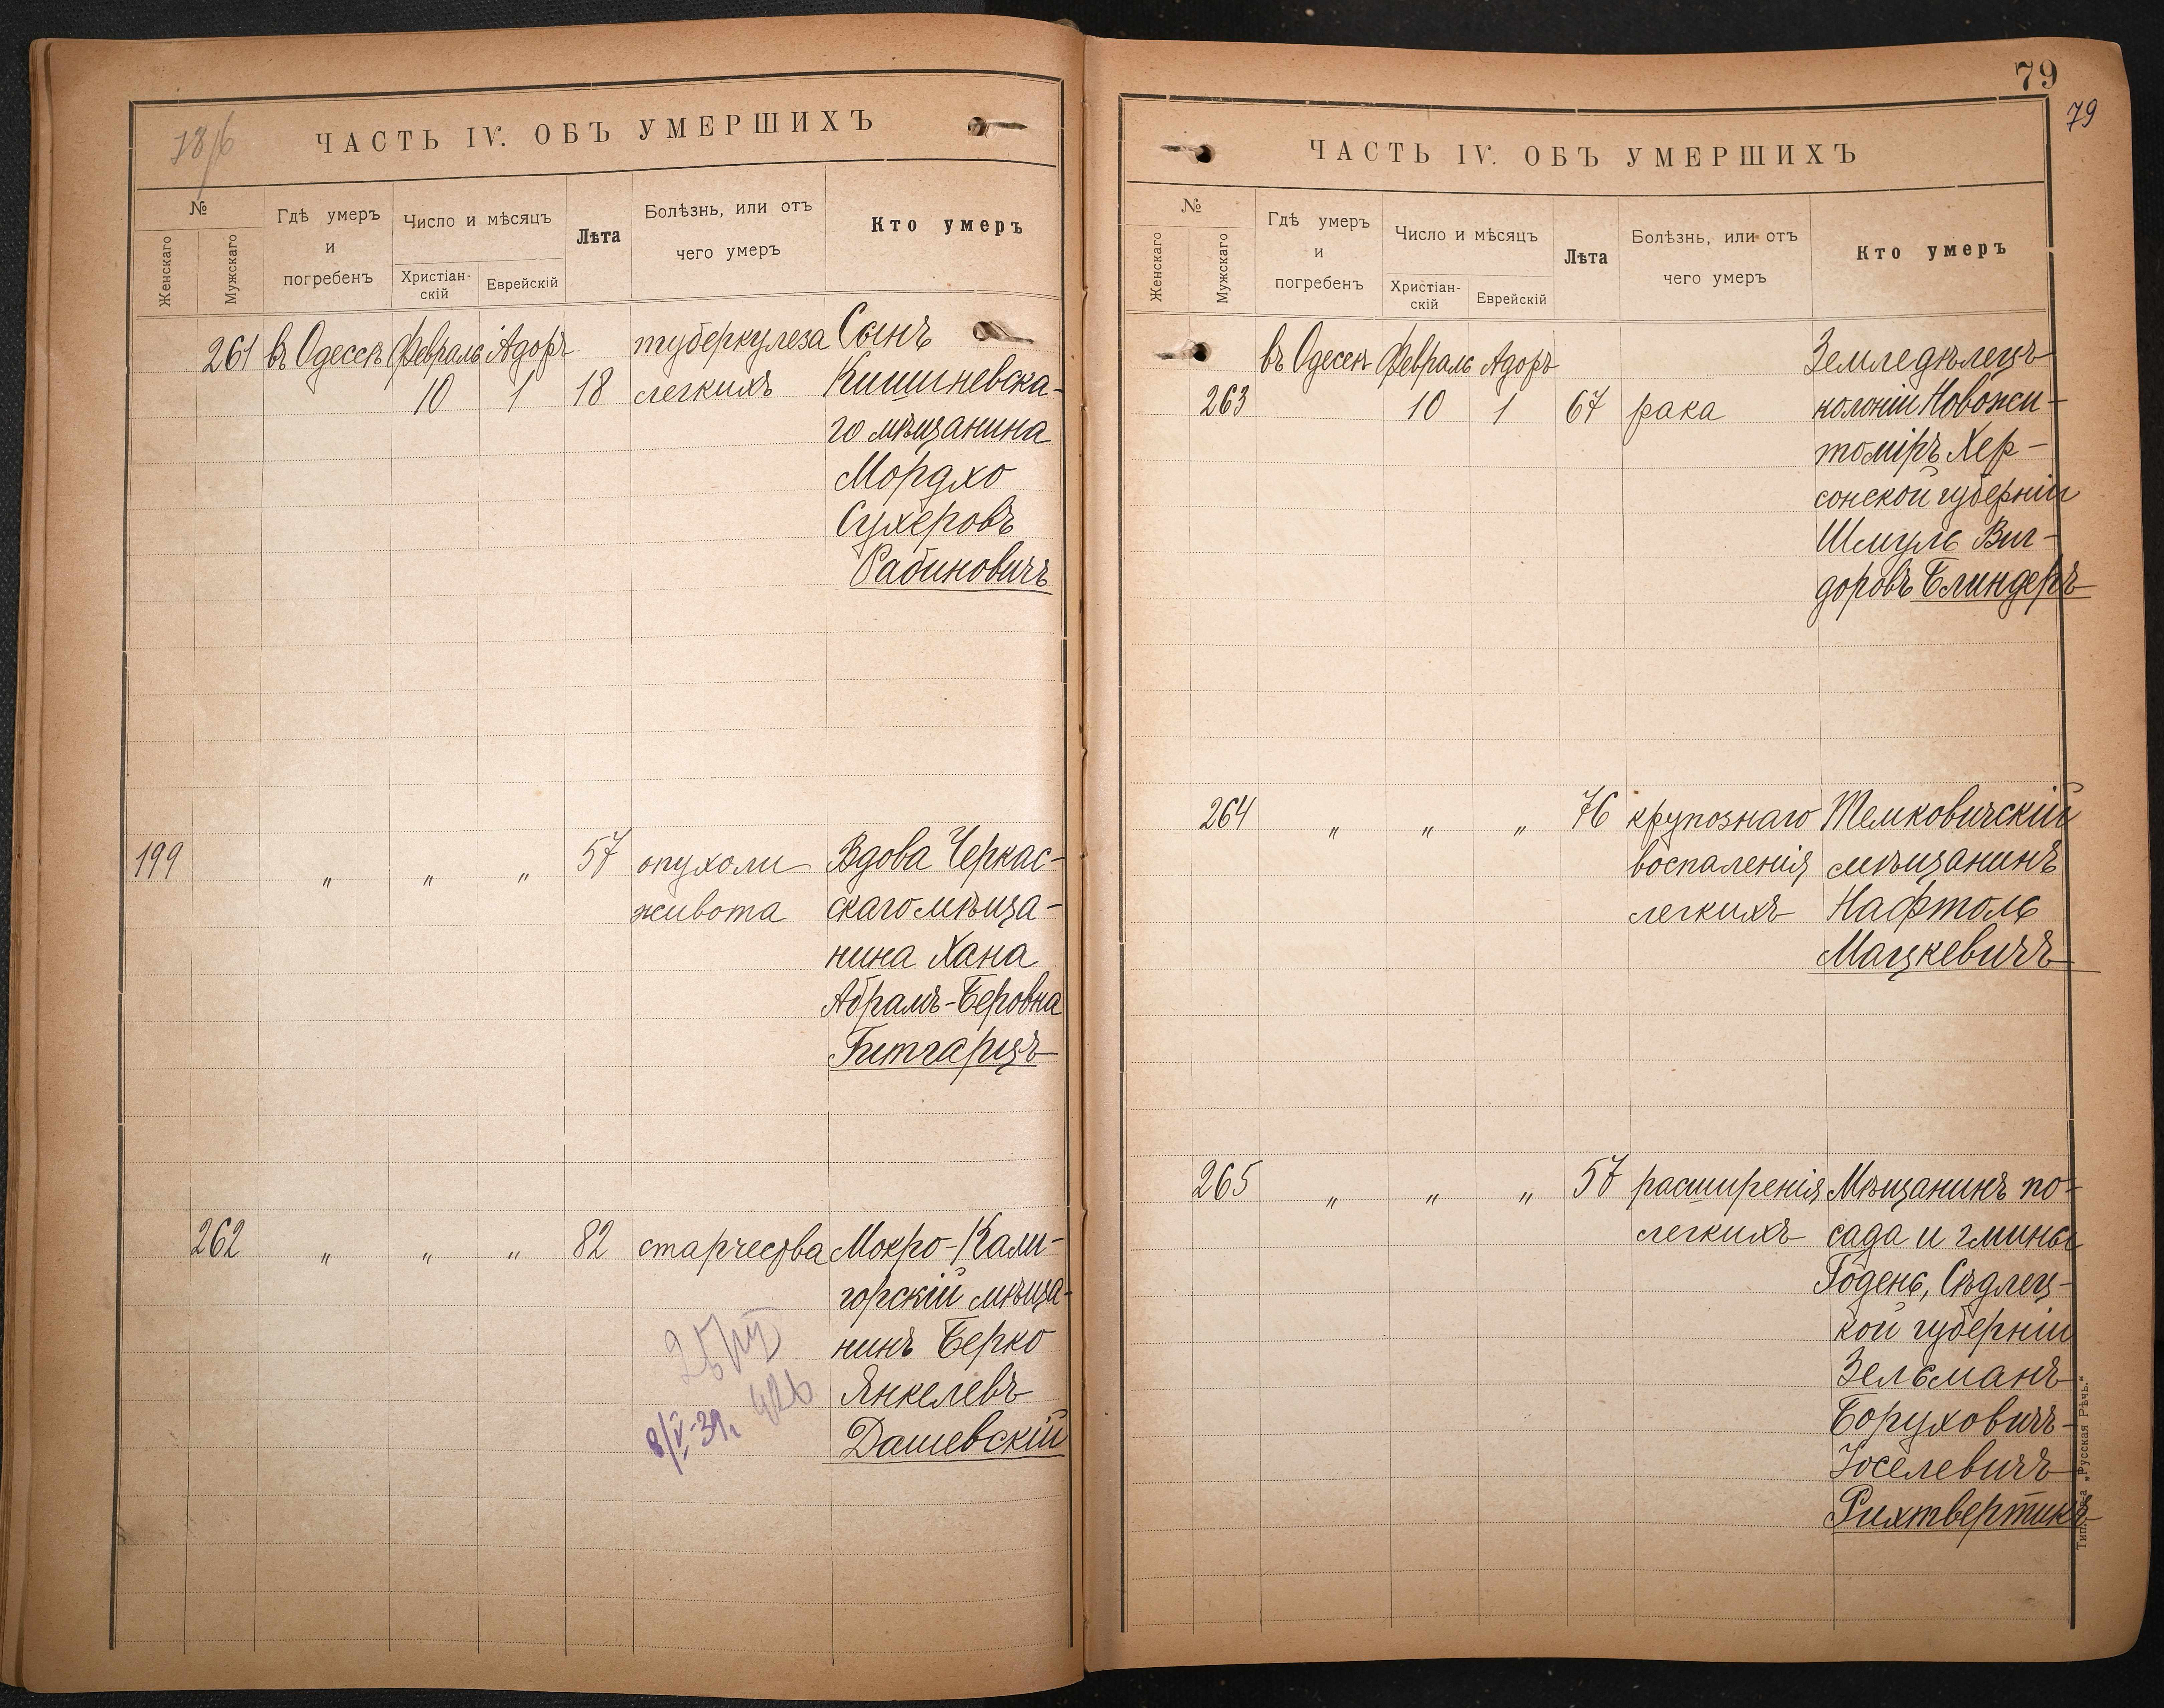 ЧАСТЬ IV. ОБЪ УМЕРШИХЪ
№
Женскаго
Мужскаго
Гдѣ умеръ
и
погребенъ
Число и мѣсяцъ
Христіан-
скій
Еврейскій
Лѣта
Болѣзнь, или отъ
чего умеръ
Кто умеръ
261 въ Одессѣ Февраль Адоръ туберкулеза Сынъ
10 1 18 легкихъ Кишиневска-
го мѣщанина
Мордхо
Сухеровъ
Рабиновичъ
199 " " " 57 опухоли Вдова Черкас-
живота скаго мѣща-
нина Хана
Абрамъ-Беровна
Гитгарцъ
262 " " " 82 старчества Мокро-Кали-
горскій мѣща-
нинъ Берко
Янкелевъ
8/V-39г.
Дашевскій
79
79
ЧАСТЬ IV. ОБЪ УМЕРШИХЪ
№
Женскаго
Мужскаго
Гдѣ умеръ
и
погребенъ
Число и мѣсяцъ
Христіан-
скій
Еврейскій
Лѣта
Болѣзнь, или отъ
чего умеръ
Кто умеръ
въ Одессѣ Февраль Адоръ Земледѣлецъ
263 10 1 67 рака колоніи Новожи-
томіръ Хер-
сонской губерніи
Шмуль Виг-
доровъ Блиндеръ
264 " " " 76 крупознаго Темковичскій
воспаленія мѣщанинъ
легкихъ Нафтоль
Мацкевичъ
265 " " " 57 расширенія Мѣщанинъ по-
легкихъ сада и гмины
Годень, Сѣдлец-
кой губерніи
Зельманъ
Боруховичъ-
Іоселевичъ
Рихтвертикъ
„Русская Рѣчь."